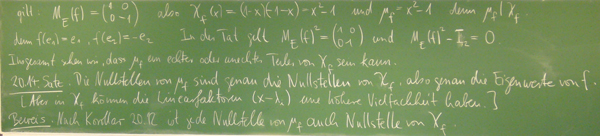 gilt M_E(f) = (1 0 / 0 -1) also χ_f(x) = (1-x)(-1-x) = x²-1 und μ_f = x²-1 denn μ_f | χ_f
denn f(e₁) = e₁, f(e₂) = -e₂ In der Tat gilt M_E(f)² = (1 0 / 0 1) und M_E(f)² - I₂ = 0.
Insgesamt sehen wir, dass μ_f ein echter oder unechter Teiler von χ_f sein kann.
20.14 Satz. Die Nullstellen von μ_f sind genau die Nullstellen von χ_f, also genau die Eigenwerte von f.
[Aber in χ_f können die Linearfaktoren (x-λ) eine höhere Vielfachheit haben.]
Beweis. Nach Korollar 20.12 ist jede Nullstelle von μ_f auch Nullstelle von χ_f.